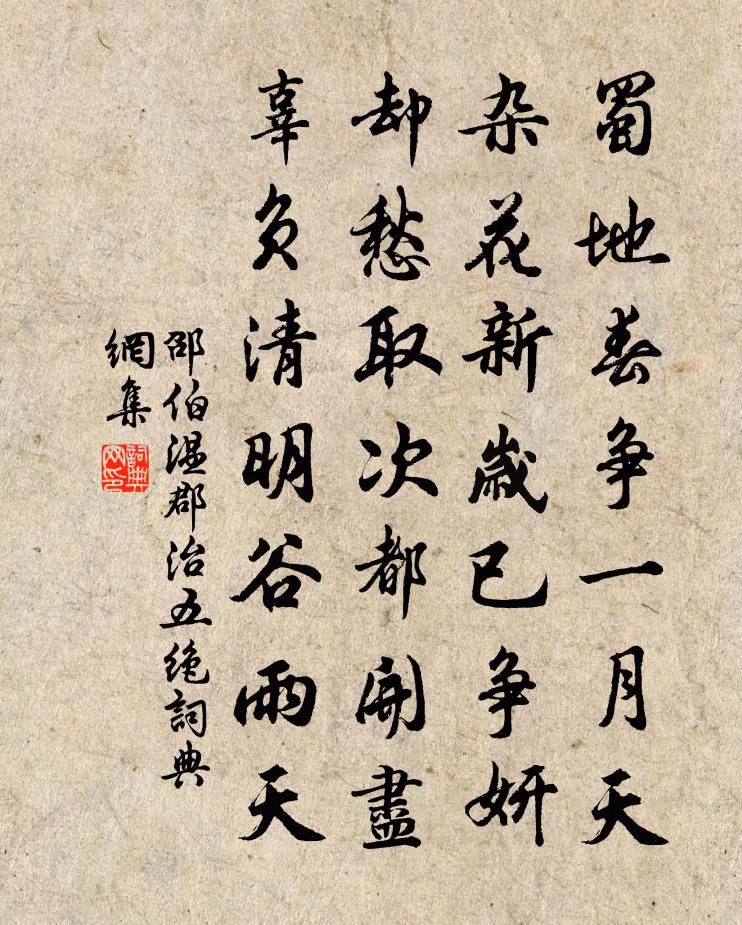 蜀地春争一月天
杂花新歲已争妍
却愁取次都開盡
辜負清明谷雨天
邵伯溫郡治五绝詞典
網集
詞典
网印